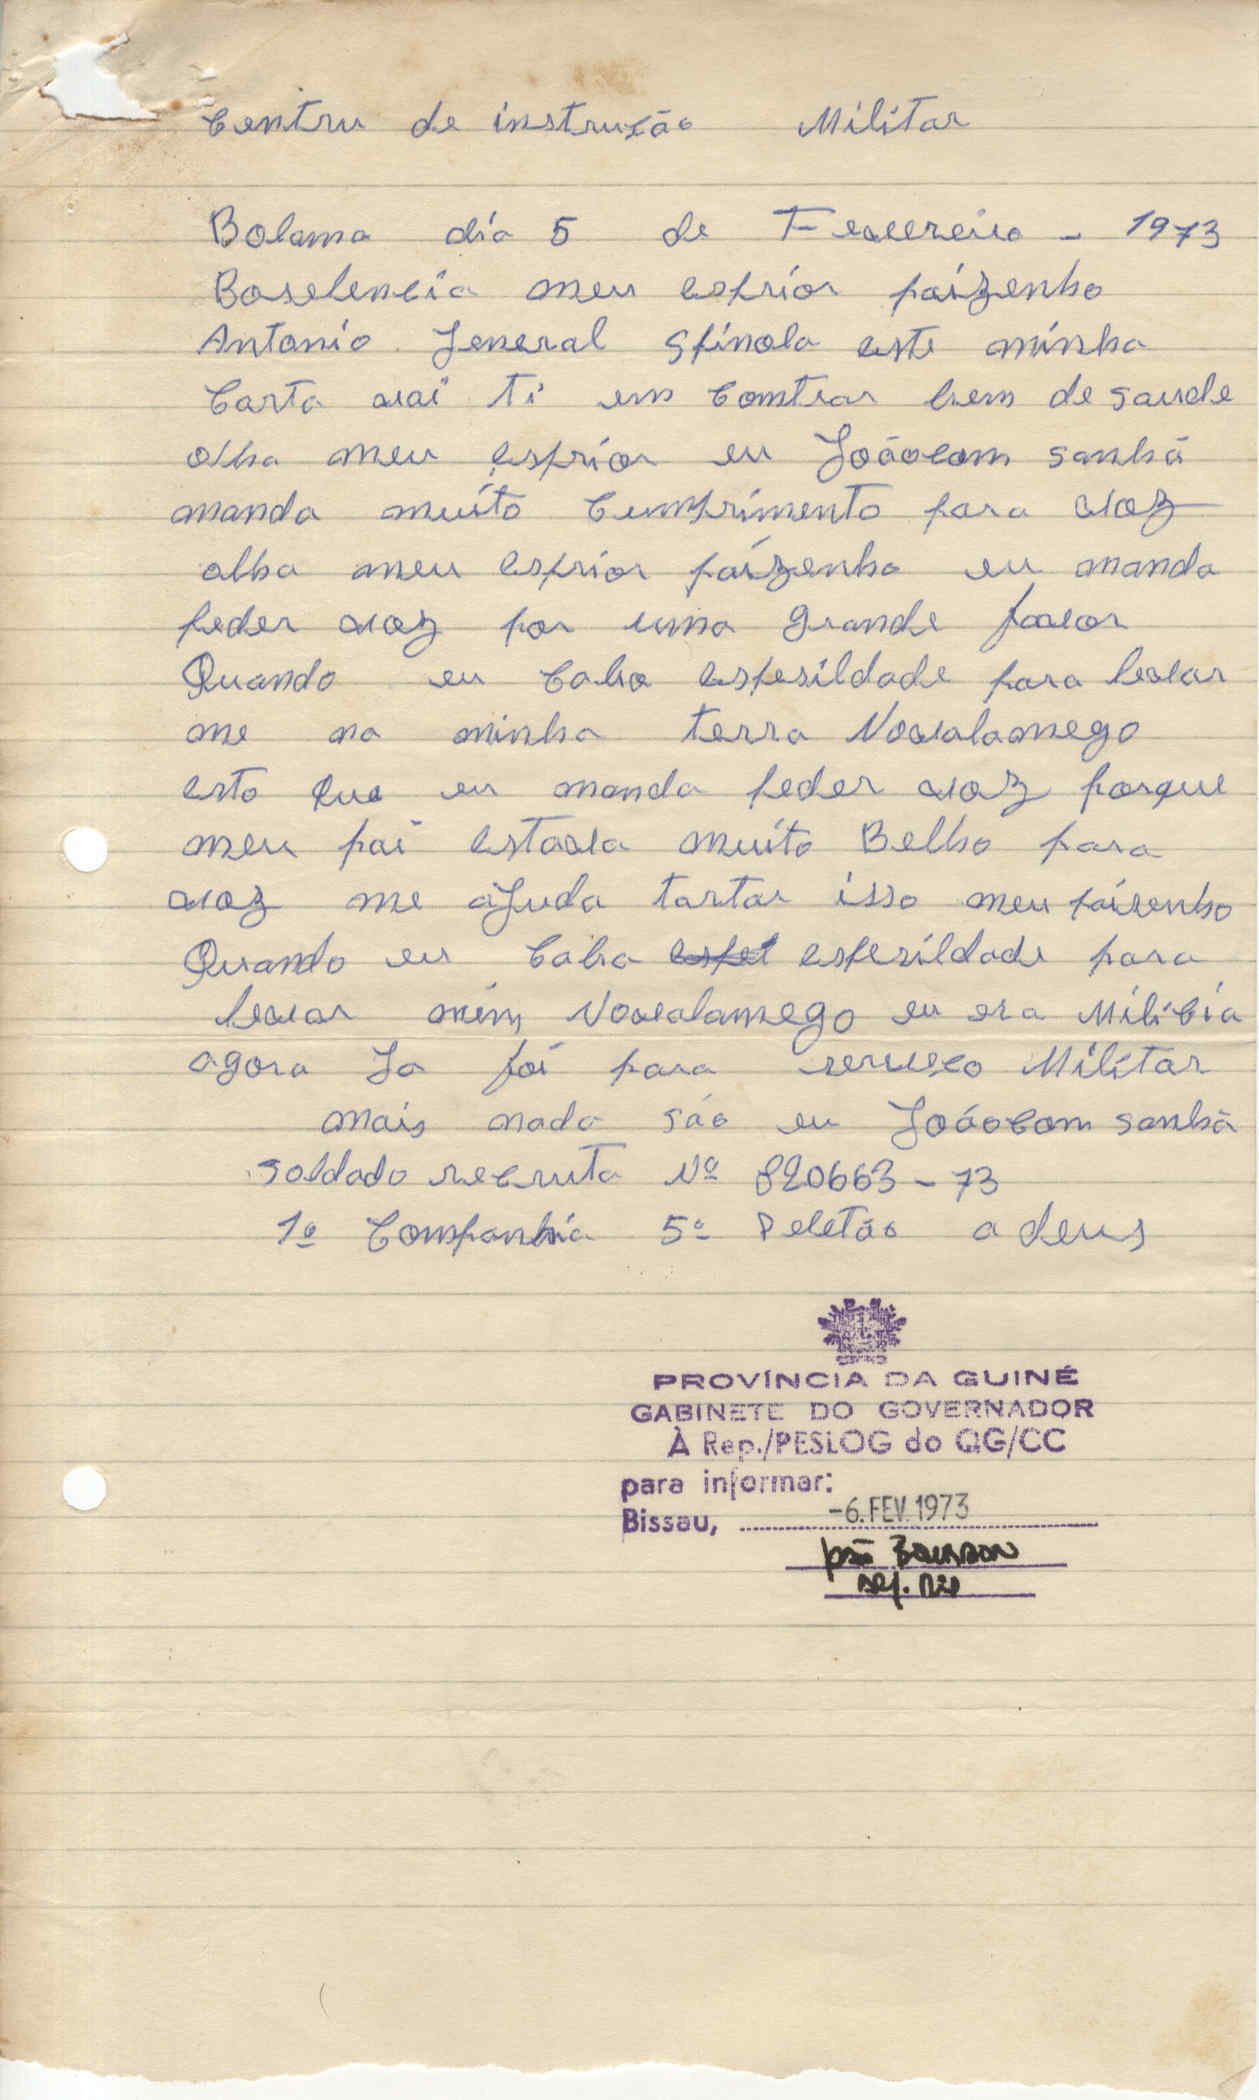 Centru de instrução Militar
Bolama dia 5 de Fevereiro - 1973
Boselencia meu esprior paizenho
Antonio Jeneral Spinola este minha
Carta vai ti em Comtrar bem de saude
olha meu esprior eu Joãocom sanhá
manda muito Cumprimento para voz
olha meu esprior paizenho eu manda
peder voz por uma grande favor
Quando eu Caba espesildade para levar
me na minha terra Novalamego
esto que eu manda peder voz porque
meu pai estava muito Belho para
voz me ajuda tartar isso meu paizenho
Quando eu Caba espesildade para
levar mim Novalamego eu era Milicia
agora Ja foi para serviço Militar
mais nada são eu Joãocom sanhá
soldado recruta Nº 820663-73
1º Companhia 5º Peletão a deus
PROVÍNCIA DA GUINÉ
GABINETE DO GOVERNADOR
À Rep./PESLOG do QG/CC
para informar:
Bissau, -6. FEV. 1973